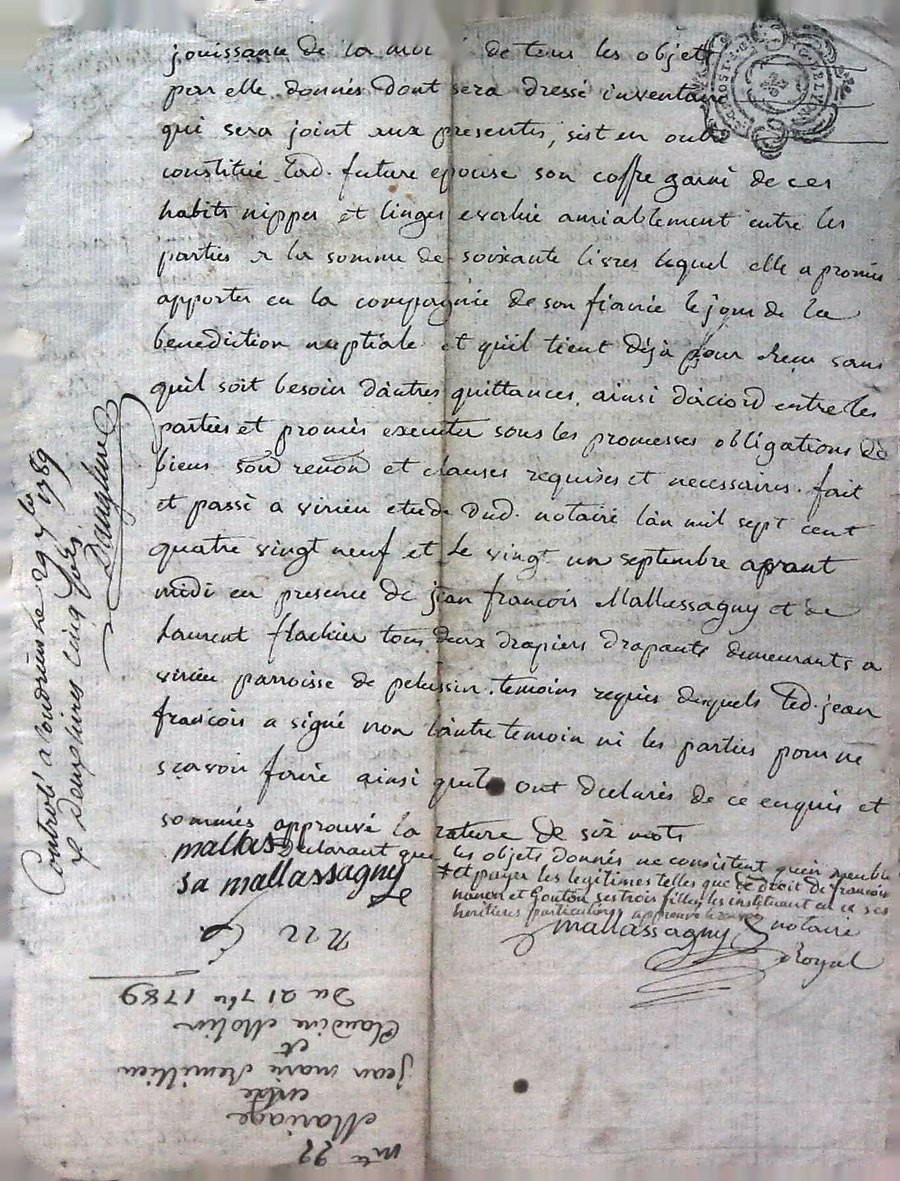 jouissance de la de tous les objets
par elle donnés dont sera dressé inventaire
qui sera joint aux presentes, s'est en outre
constitué lad. future epouse son coffre garni de ces
habits nippes et linges evalué amiablement entre les
parties a la somme de soixante livres lequel elle a promis
apporter en la compagnie de son fiancé le jour de la
benediction nuptiale et qu'il tient déjà pour recu sans
qu'il soit besoin d'autres quittances, ainsi d'acord entre les
parties et promis executer sous les promesses obligations de
biens renon et clauses requises et necessaires. fait
et passé a virieu etude dud. notaire l'an mil sept cent
quatre vingt neuf et le vingt un septembre avant
midi en presence de jean françois Mallassagny et de
Laurent flachier tous deux drapiers drapants demeurants a
virieu parroisse de pelussin. temoins requis desquels led. jean
francois a signé non l'autre temoin ni les parties pour ne
scavoir faire ainsi quils ont declarés de ce enquis et
sommés approuvé la rature de six mots
declarant que les objets donnés ne consistent qu'en meuble
mallas
sa mallassagny
et payer les legitimes telles que de droit de francois
nanon et Gouton ses trois filles les instituant en ce ses
heritieres particulieres approuvé le renvoy
mallassagny notaire
Royal
Controlé a Condrieu le 29 7bre 1789
deux livres cinq sols
n 22
n 22
Mariage
entre
jean marie Remillieu
et
Claudine Molin
Du 21 7bre 1789